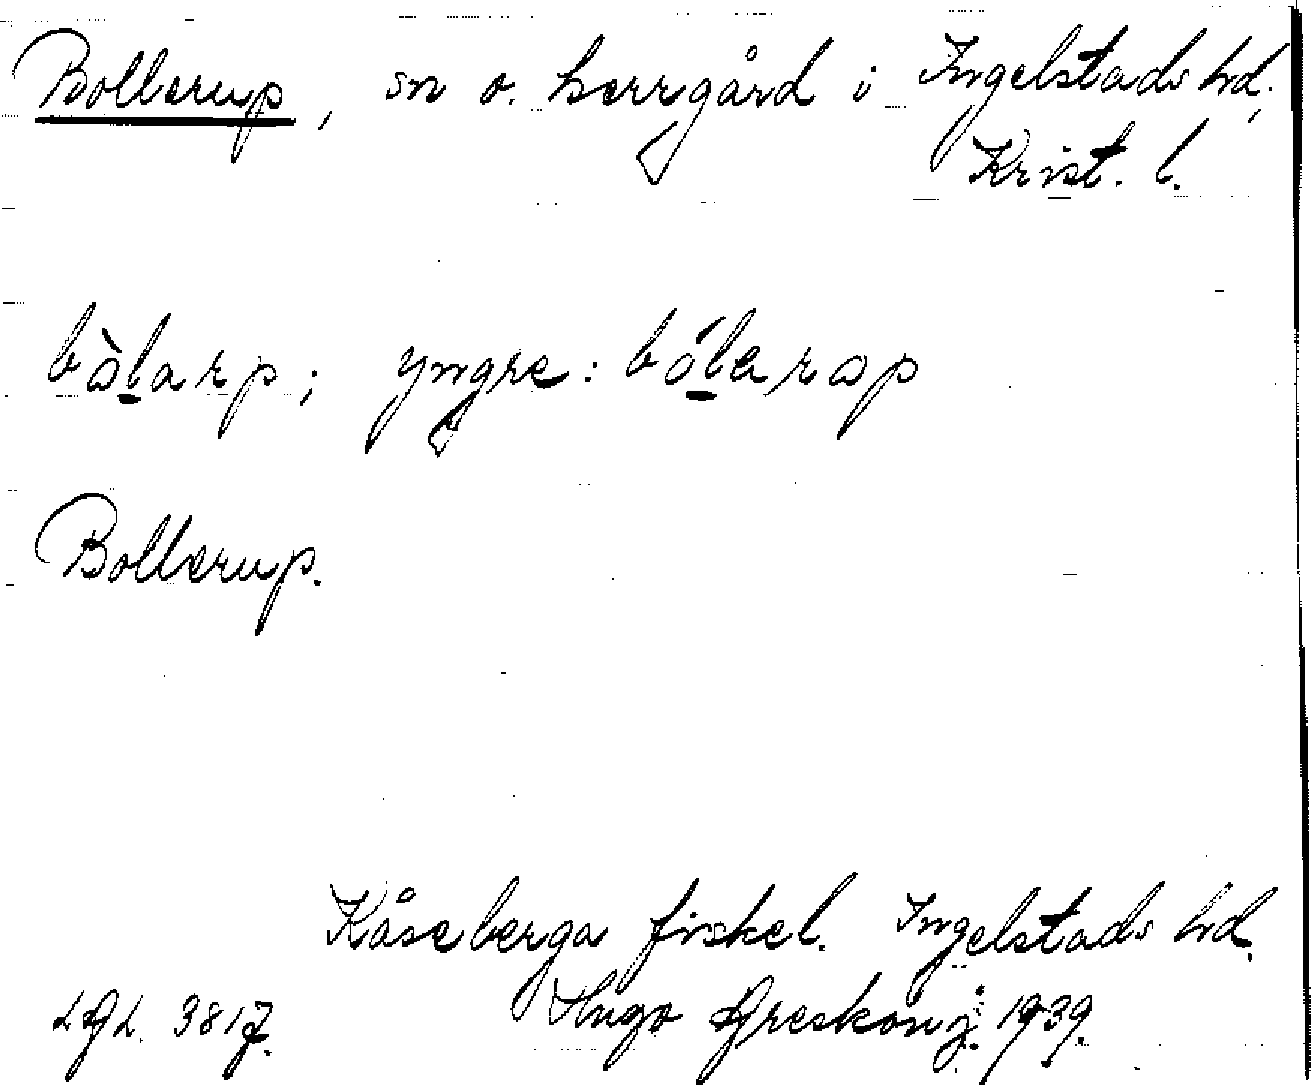 Bollerup, sn o. herrgård i Ingelstads hd.,
Krist. l.
bòlarp; yngre: bólarap
Bollerup.
Kåseberga fiskel. Ingelstads hd.
3817. Hugo Areskoug. 1939.